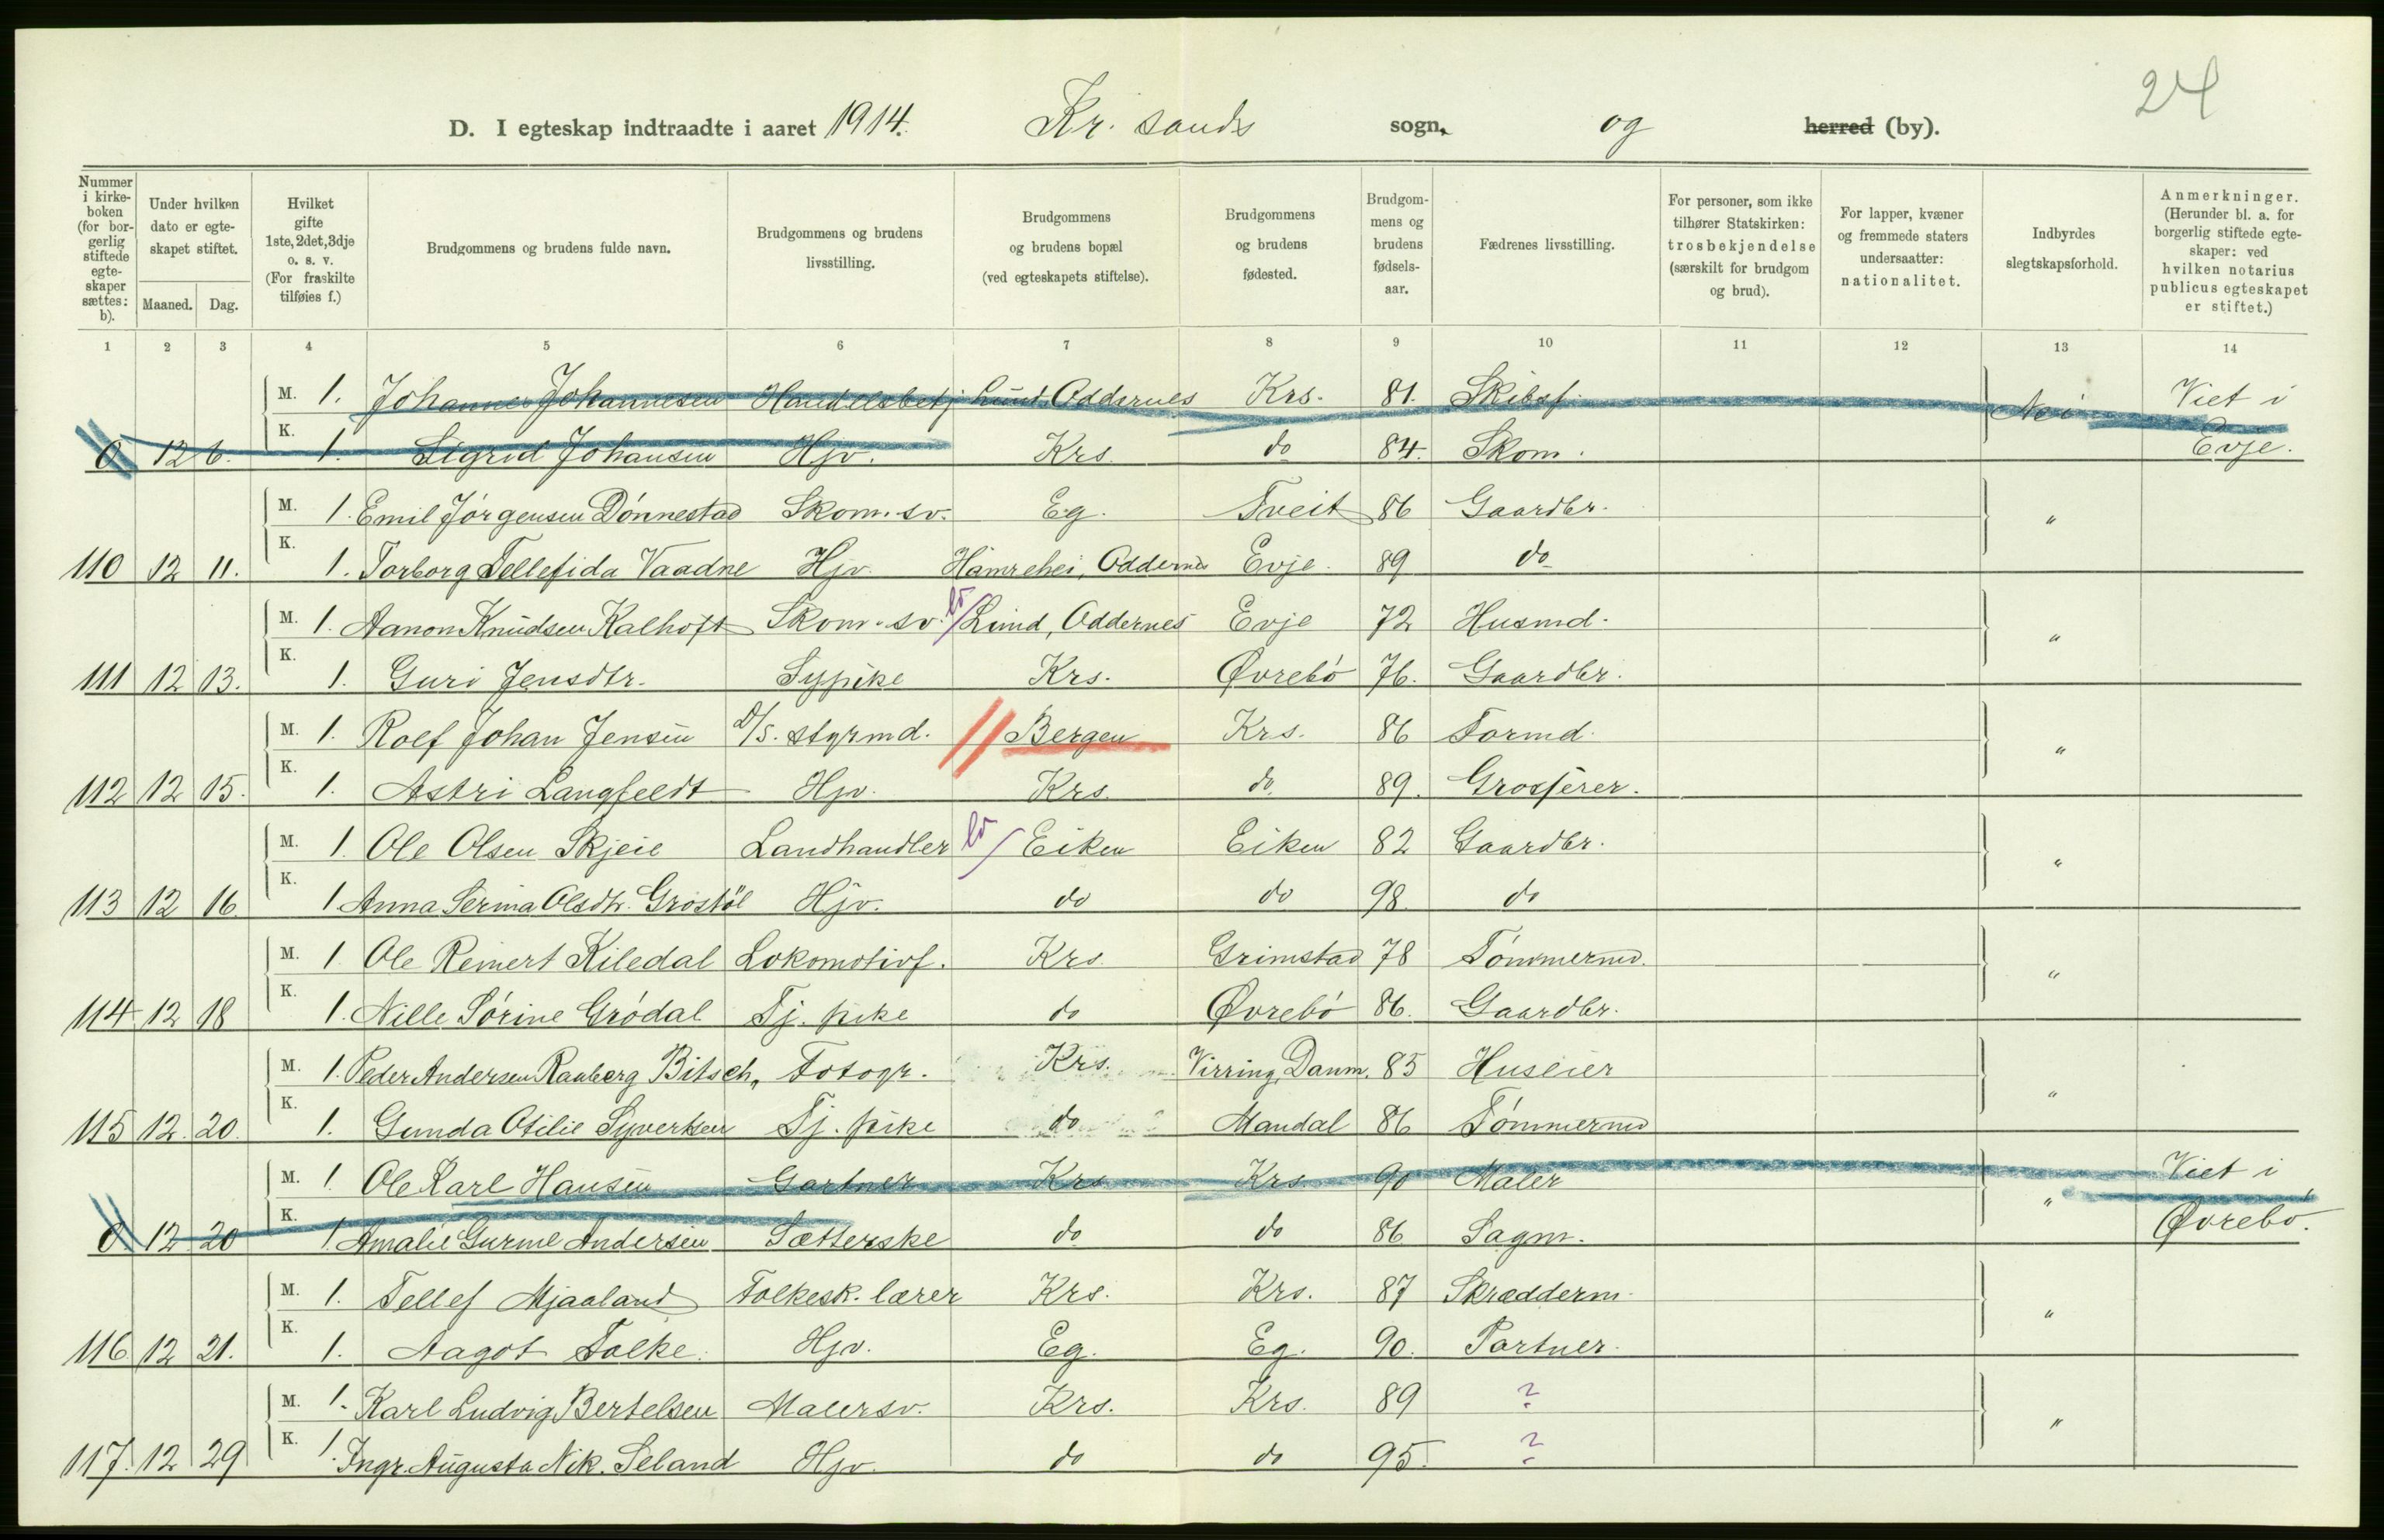 24
D. I egteskap indtraadte i aaret 1914. Kr. sands sogn, og herred (by).
Nummer i kirkeboken (for borgerlig stiftede egteskaper sættes: b).
Under hvilken dato er egteskapet stiftet.
Maaned. Dag.
Hvilket gifte 1ste, 2det, 3dje o. s. v. (For fraskilte tilføies f.)
Brudgommens og brudens fulde navn.
Brudgommens og brudens livsstilling.
Brudgommens og brudens bopæl (ved egteskapets stiftelse).
Brudgommens og brudens fødested.
Brudgommens og brudens fødselsaar.
Fædrenes livsstilling.
For personer, som ikke tilhører Statskirken: trosbekjendelse (særskilt for brudgom og brud).
For lapper, kvæner og fremmede staters undersaatter: nationalitet.
Indbyrdes slegtskapsforhold.
Anmerkninger. (Herunder bl. a. for borgerlig stiftede egteskaper: ved hvilken notarius publicus egteskapet er stiftet.)
1 2 3 4 5 6 7 8 9 10 11 12 13 14
M. 1. Johannes Johannesen Handelsbetj. Lund, Oddernes Krs. 81. Skibsf. Nei Viet i
0 12 6. K. 1. Sigrid Johansen Hjv. Krs. do 84. Skom. Evje.
M. 1. Emil Jörgensen Dönnestad Skom. sv. Eg. Tveit 86 Gaardbr. "
110 12 11. K. 1. Torborg Tellefida Vaadne Hjv. Hamrehei, Oddernes Evje. 89 do
M. 1. Aanon Knudsen Kalhoft Skom. sv. Lund, Oddernes Evje 72 Husmd. "
111 12 13. K. 1. Guri Jensdtr. Sypike Krs. Øvrebö 76. Gaardbr.
M. 1. Rolf Johan Jensen D/S. styrmd. Bergen Krs. 86 Formd. "
112 12 15. K. 1. Astri Langfeldt Hjv. Krs. do 89. Grosserer.
M. 1. Ole Olsen Skjeie Landhandler Eiken Eiken 82 Gaardbr. "
113 12 16. K. 1. Anna Serina Olsdtr. Grostöl Hjv. do do 98. do
M. 1. Ole Reinert Kiledal Lokomotivf. Krs. Grimstad 78 Tömmermd. "
114 12 18 K. 1. Nille Sörine Grödal Tj. pike do Øvrebö 86. Gaardbr.
M. 1. Peder Andersen Raaberg Bitsch, Fotogr. Krs. Virring, Danm. 85 Huseier "
115 12. 20. K. 1. Gunda Otilie Syvertsen Tj. pike do Mandal 86 Tömmermd
M. 1. Ole Karl Hansen Gartner Krs. Krs. 90 Maler " Viet i
0. 12 20 K. 1. Amalie Gurine Andersen Sætterske do do 86 Sagm. Øvrebö.
M. 1. Tellef Mjaaland Folkesk. lærer Krs. Krs. 87 Skrædderm. "
116. 12 21. K. 1. Aagot Falke. Hjv. Eg. Eg. 90. Partner.
M. 1. Karl Ludvig Bertelsen Malersv. Krs. Krs. 89 ? "
117. 12 29 K. 1. Ingr. Augusta Nik. Seland Hjv. do do 95. ?